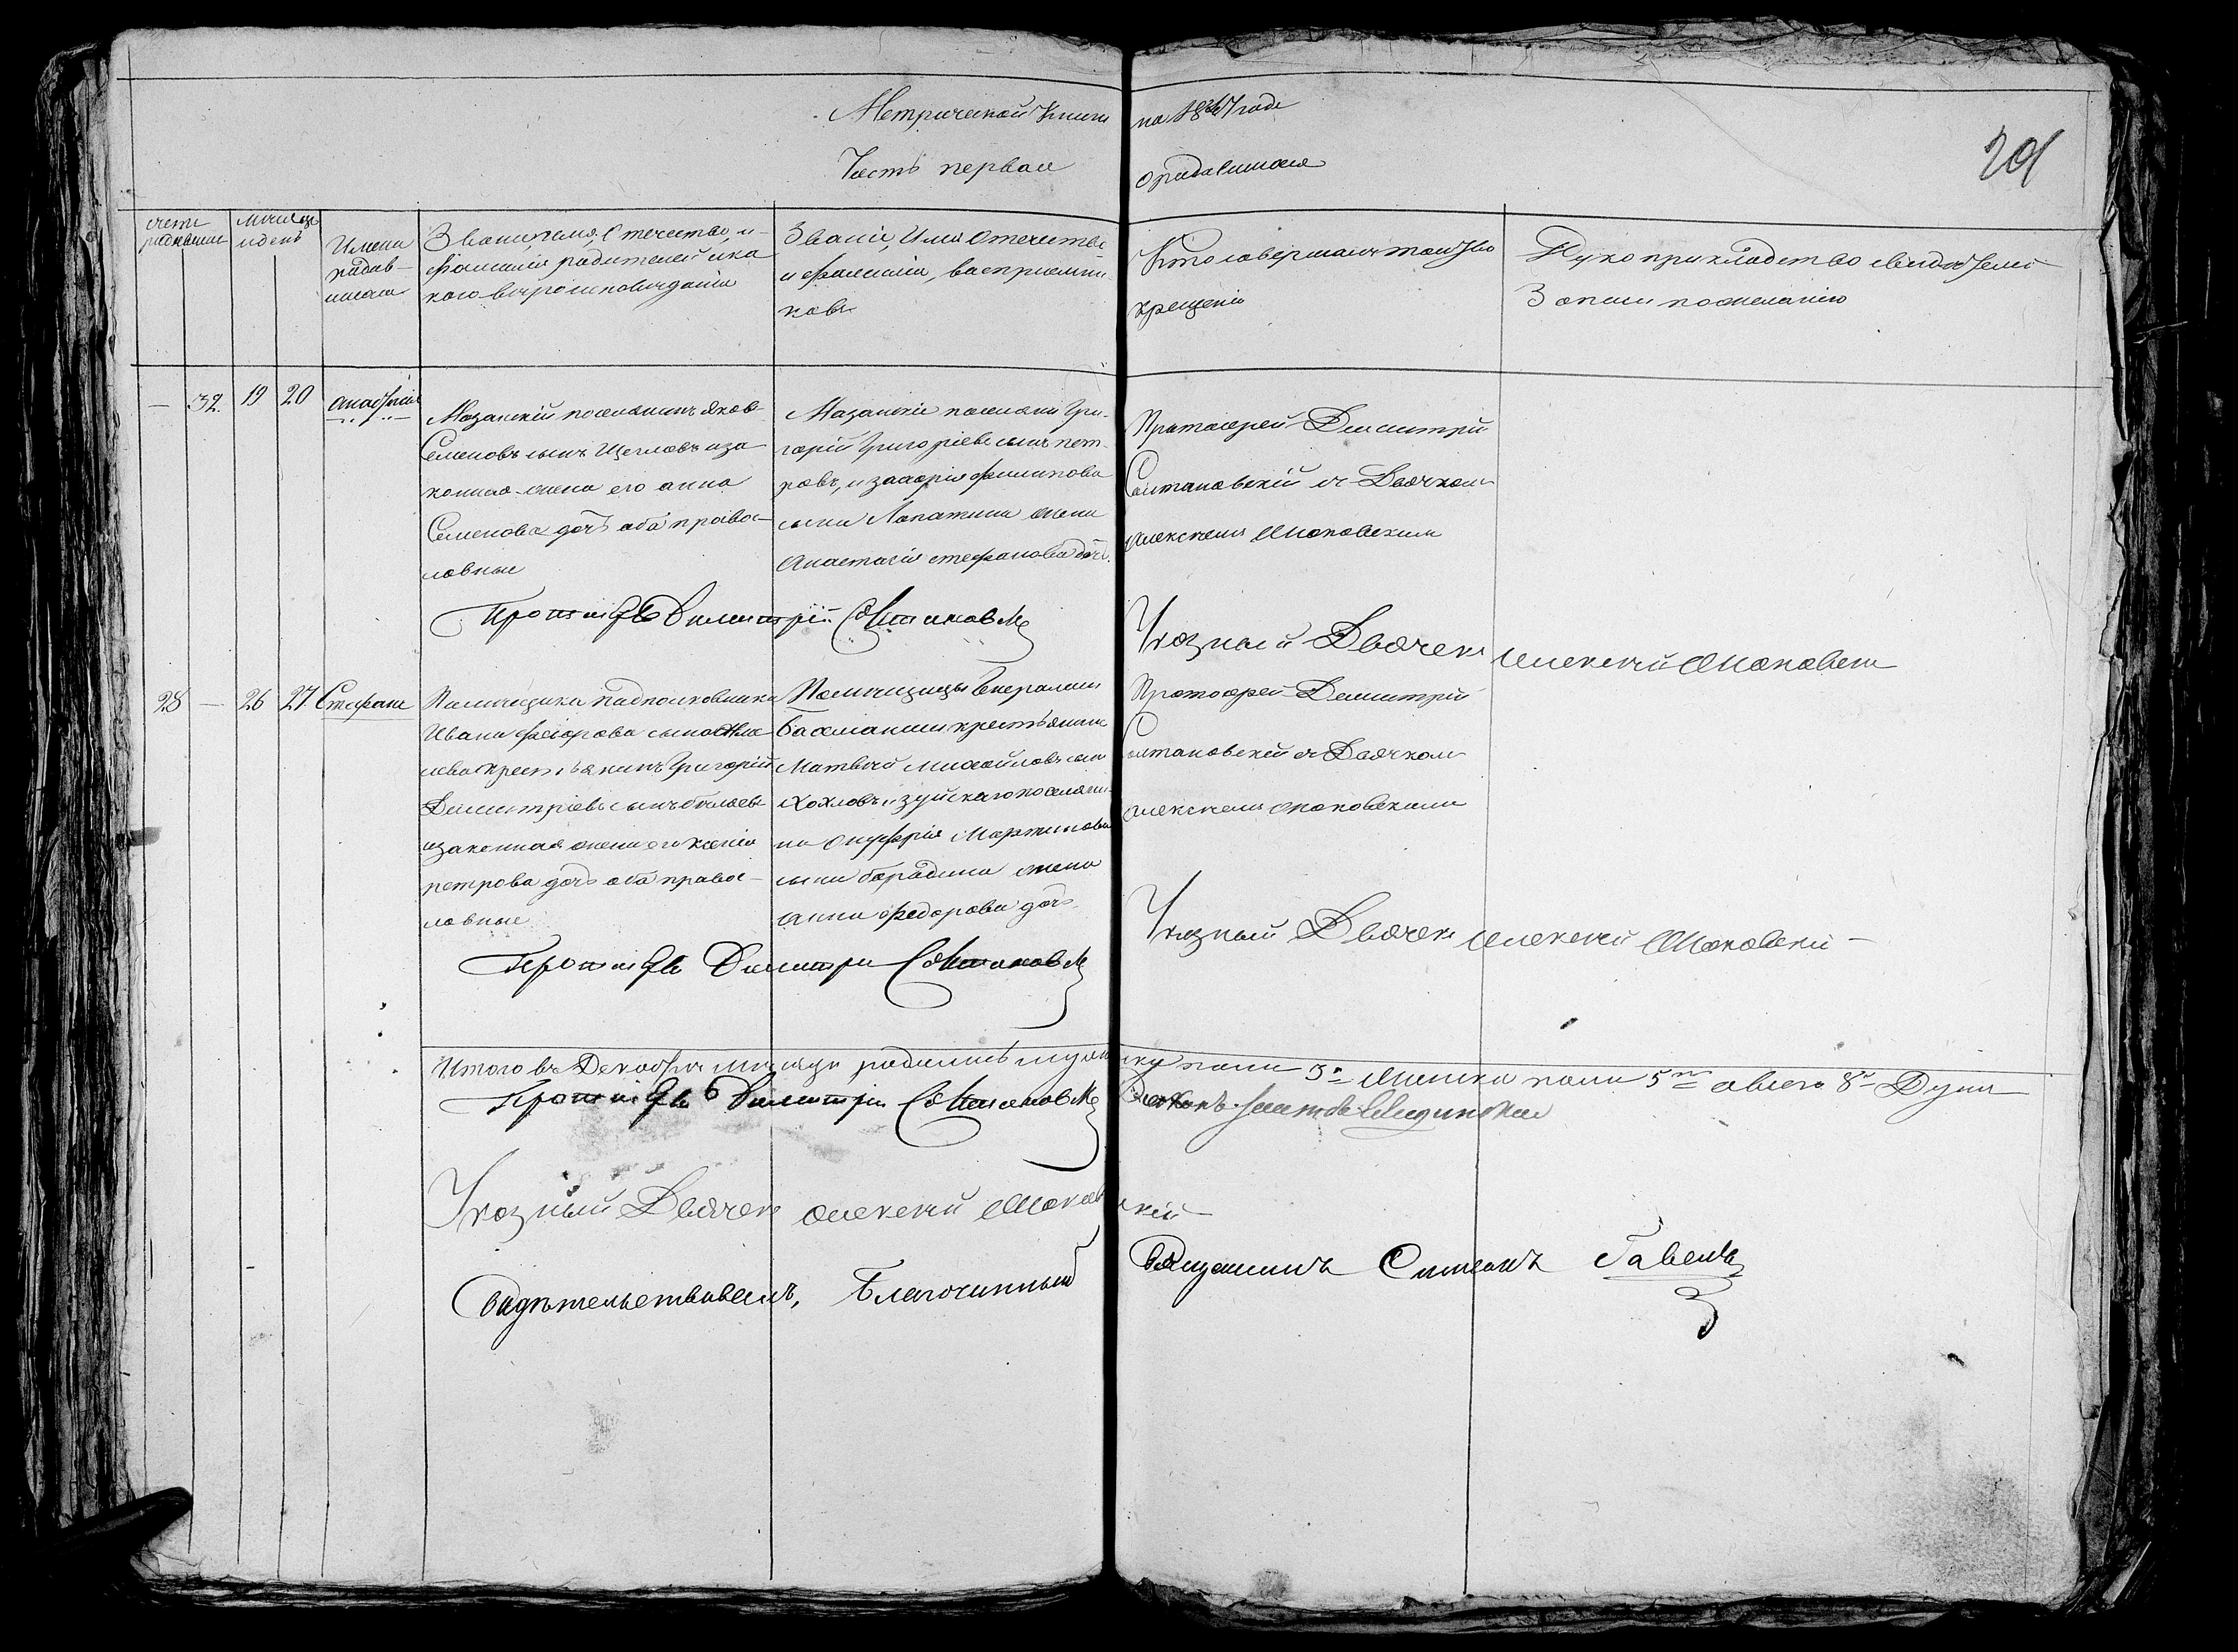 Метрической Книги на 1847 годъ
Часть первая о родившихся
201
счетъ родившихся
Мѣсяцъ и день
Имена родив-
шихся
Званіе, имя, Отечество, и
фамилія родителей и ка
кого вѣроисповѣданія
Званіе, Имя Отечество
и фамилія, воспріемни
ковъ
Кто совершалъ таинство
крещенія
Рукоприкладство свидѣтелей
Записи по желанію
— 32. 19 20 Анастасія
Мазанскій поселянинъ Яков
Семеновъ сынъ Щегловъ и за
конная жена его Анна
Семенова дочь оба правос-
лавные
Мазанскіе поселяни Гри-
горій Григоріевъ сынъ Пет-
ровъ, и Захарія Филипова
сына Лопатина жена
Анастасія Стефанова дочь.
Протоіерей Димитрій
Солтановскій съ Дьячком
Алексеем Маковским
Протоіерей Димитрій Солтановскій
Указный Дьячекъ Алексей Маковский
28 — 26 27 Стефанъ
Помещика подполковника
Ивана Феодорова сына
крестьянинъ Григорій
Димитріевъ сынъ Беляевъ
и законная жена его Ксенія
Петрова дочь оба правос-
лавные
Помещицы Генеральши
крестьянинъ
Матвей Михайловъ сынъ
Хохловъ и Зуйскаго поселяни-
на Онуфрія Мартинова
сына Бородина жена
Анна Федорова дочь
Протоерей Димитрій
Солтановскій съ Дьячком
Алексеем Маковским
Протоіерей Димитрій Солтановскій
Указный Дьячекъ Алексей Маковский
Итого въ Декабре месяце родилось мужеску пола 3 Женска пола 5 всего 8 Душъ
Протоіерей Димитрій Солтановскій Дьяконъ
Указный Дьячекъ Алексей Маковский
Свидѣтельствовалъ, Благочинный Священникъ Симеонъ